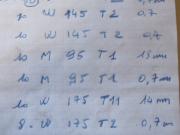 10 W 145 T2 0.7
10 W 145 T2 0.7
10 M 95 T1 15mm
10 M 95 T1 0,7mm
10 W 175 T11 14mm
8. W 175 T2 0,7m